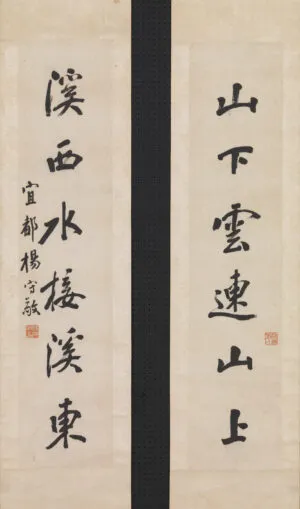 山下雲連山上
溪西水接溪東
宜都楊守敬